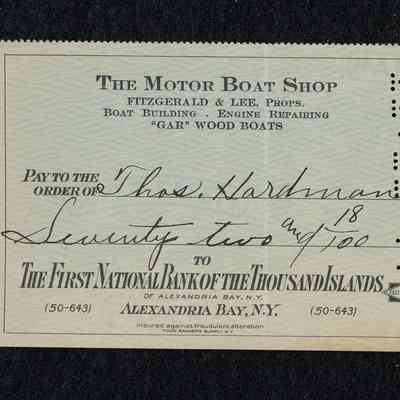 THE MOTOR BOAT SHOP
FITZGERALD & LEE, PROPS.
BOAT BUILDING . ENGINE REPAIRING
"GAR" WOOD BOATS
PAY TO THE
ORDER OF Thos. Hardman
Seventy two and 18/100
TO
THE FIRST NATIONAL BANK OF THE THOUSAND ISLANDS
OF ALEXANDRIA BAY, N.Y.
(50-643) ALEXANDRIA BAY, N.Y. (50-643)
insured against fraudulent alteration